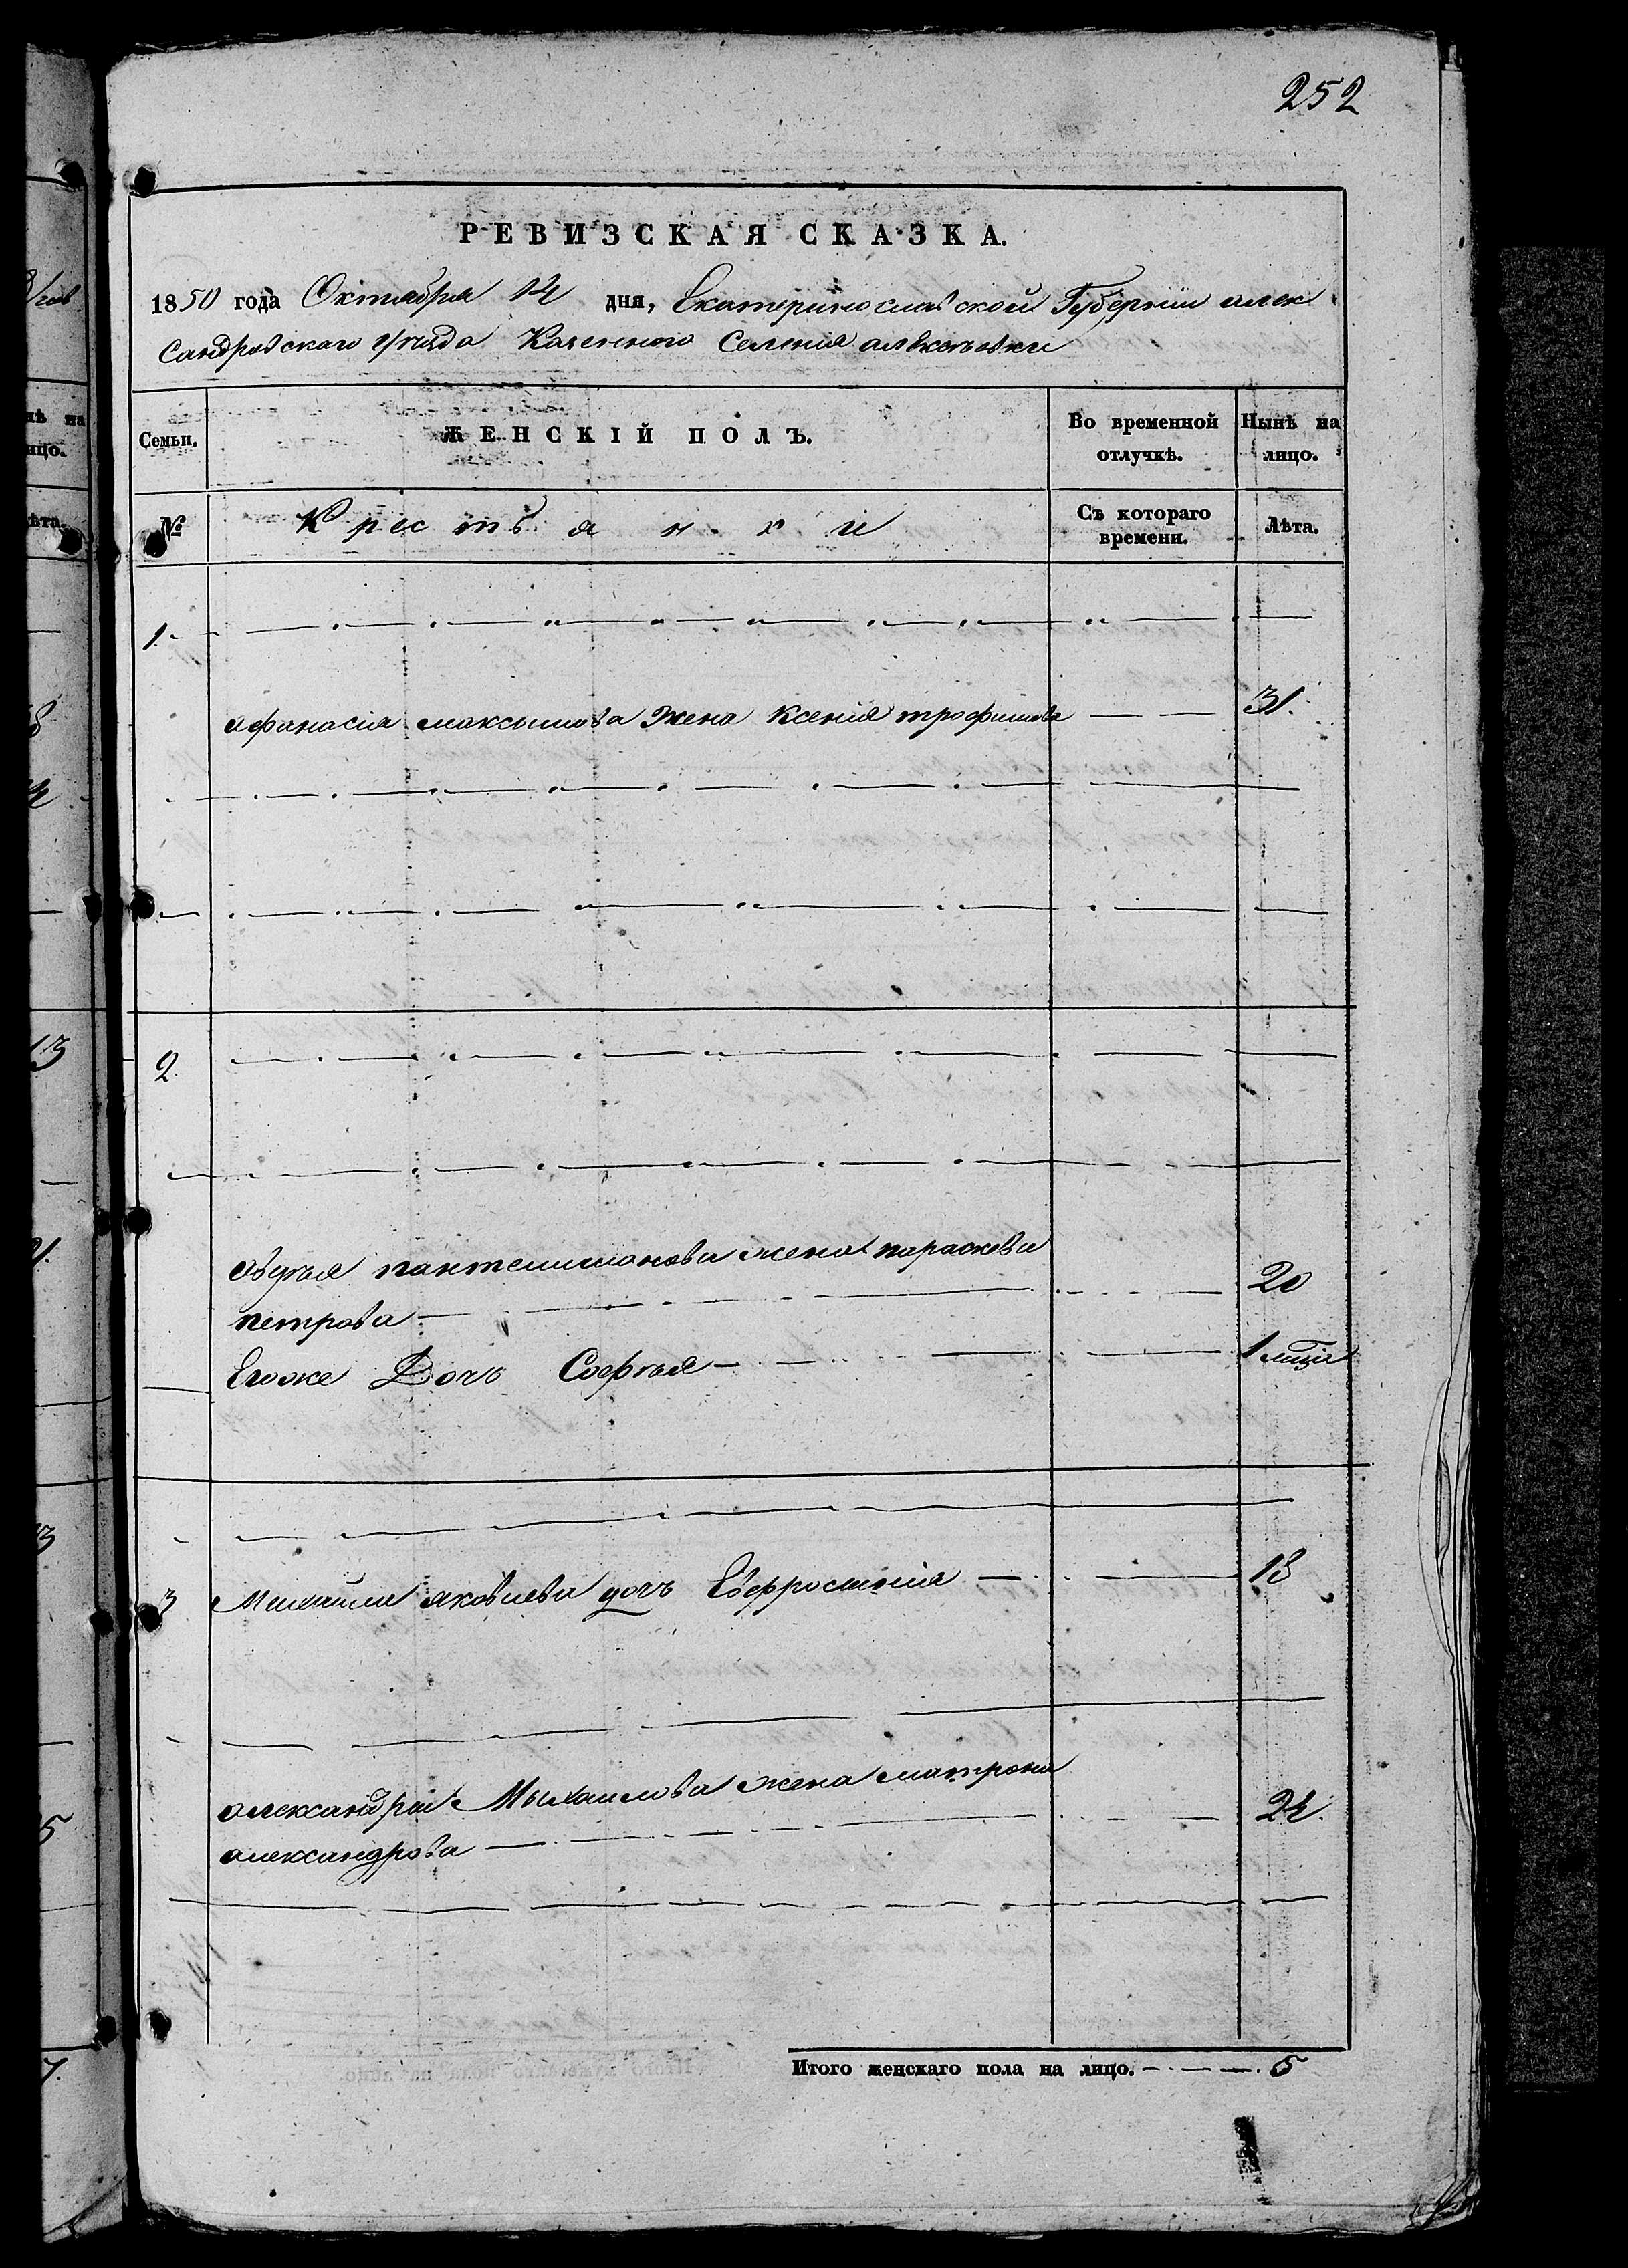 252
РЕВИЗСКАЯ СКАЗКА.
1850 года Октября 14 дня, Екатеринославской Губернии алек
сандровского уезда Казенного Селения алексеевки
Семьи. ЖЕНСКІЙ ПОЛЪ. Во временной отлучкѣ. Нынѣ на лицо.
№ Крестьянки Съ котораго времени. Лѣта.
1.
афанасія максымова жена Ксенія трофимова 31.
2
пантелимонова жена параскева 20
петрова
Егоже Дочь Софья 1
3 яковлева дочь Евфросинія 13
александра Мыхаилова жена матрона
александрова 24.
Итого женскаго пола на лицо. 5